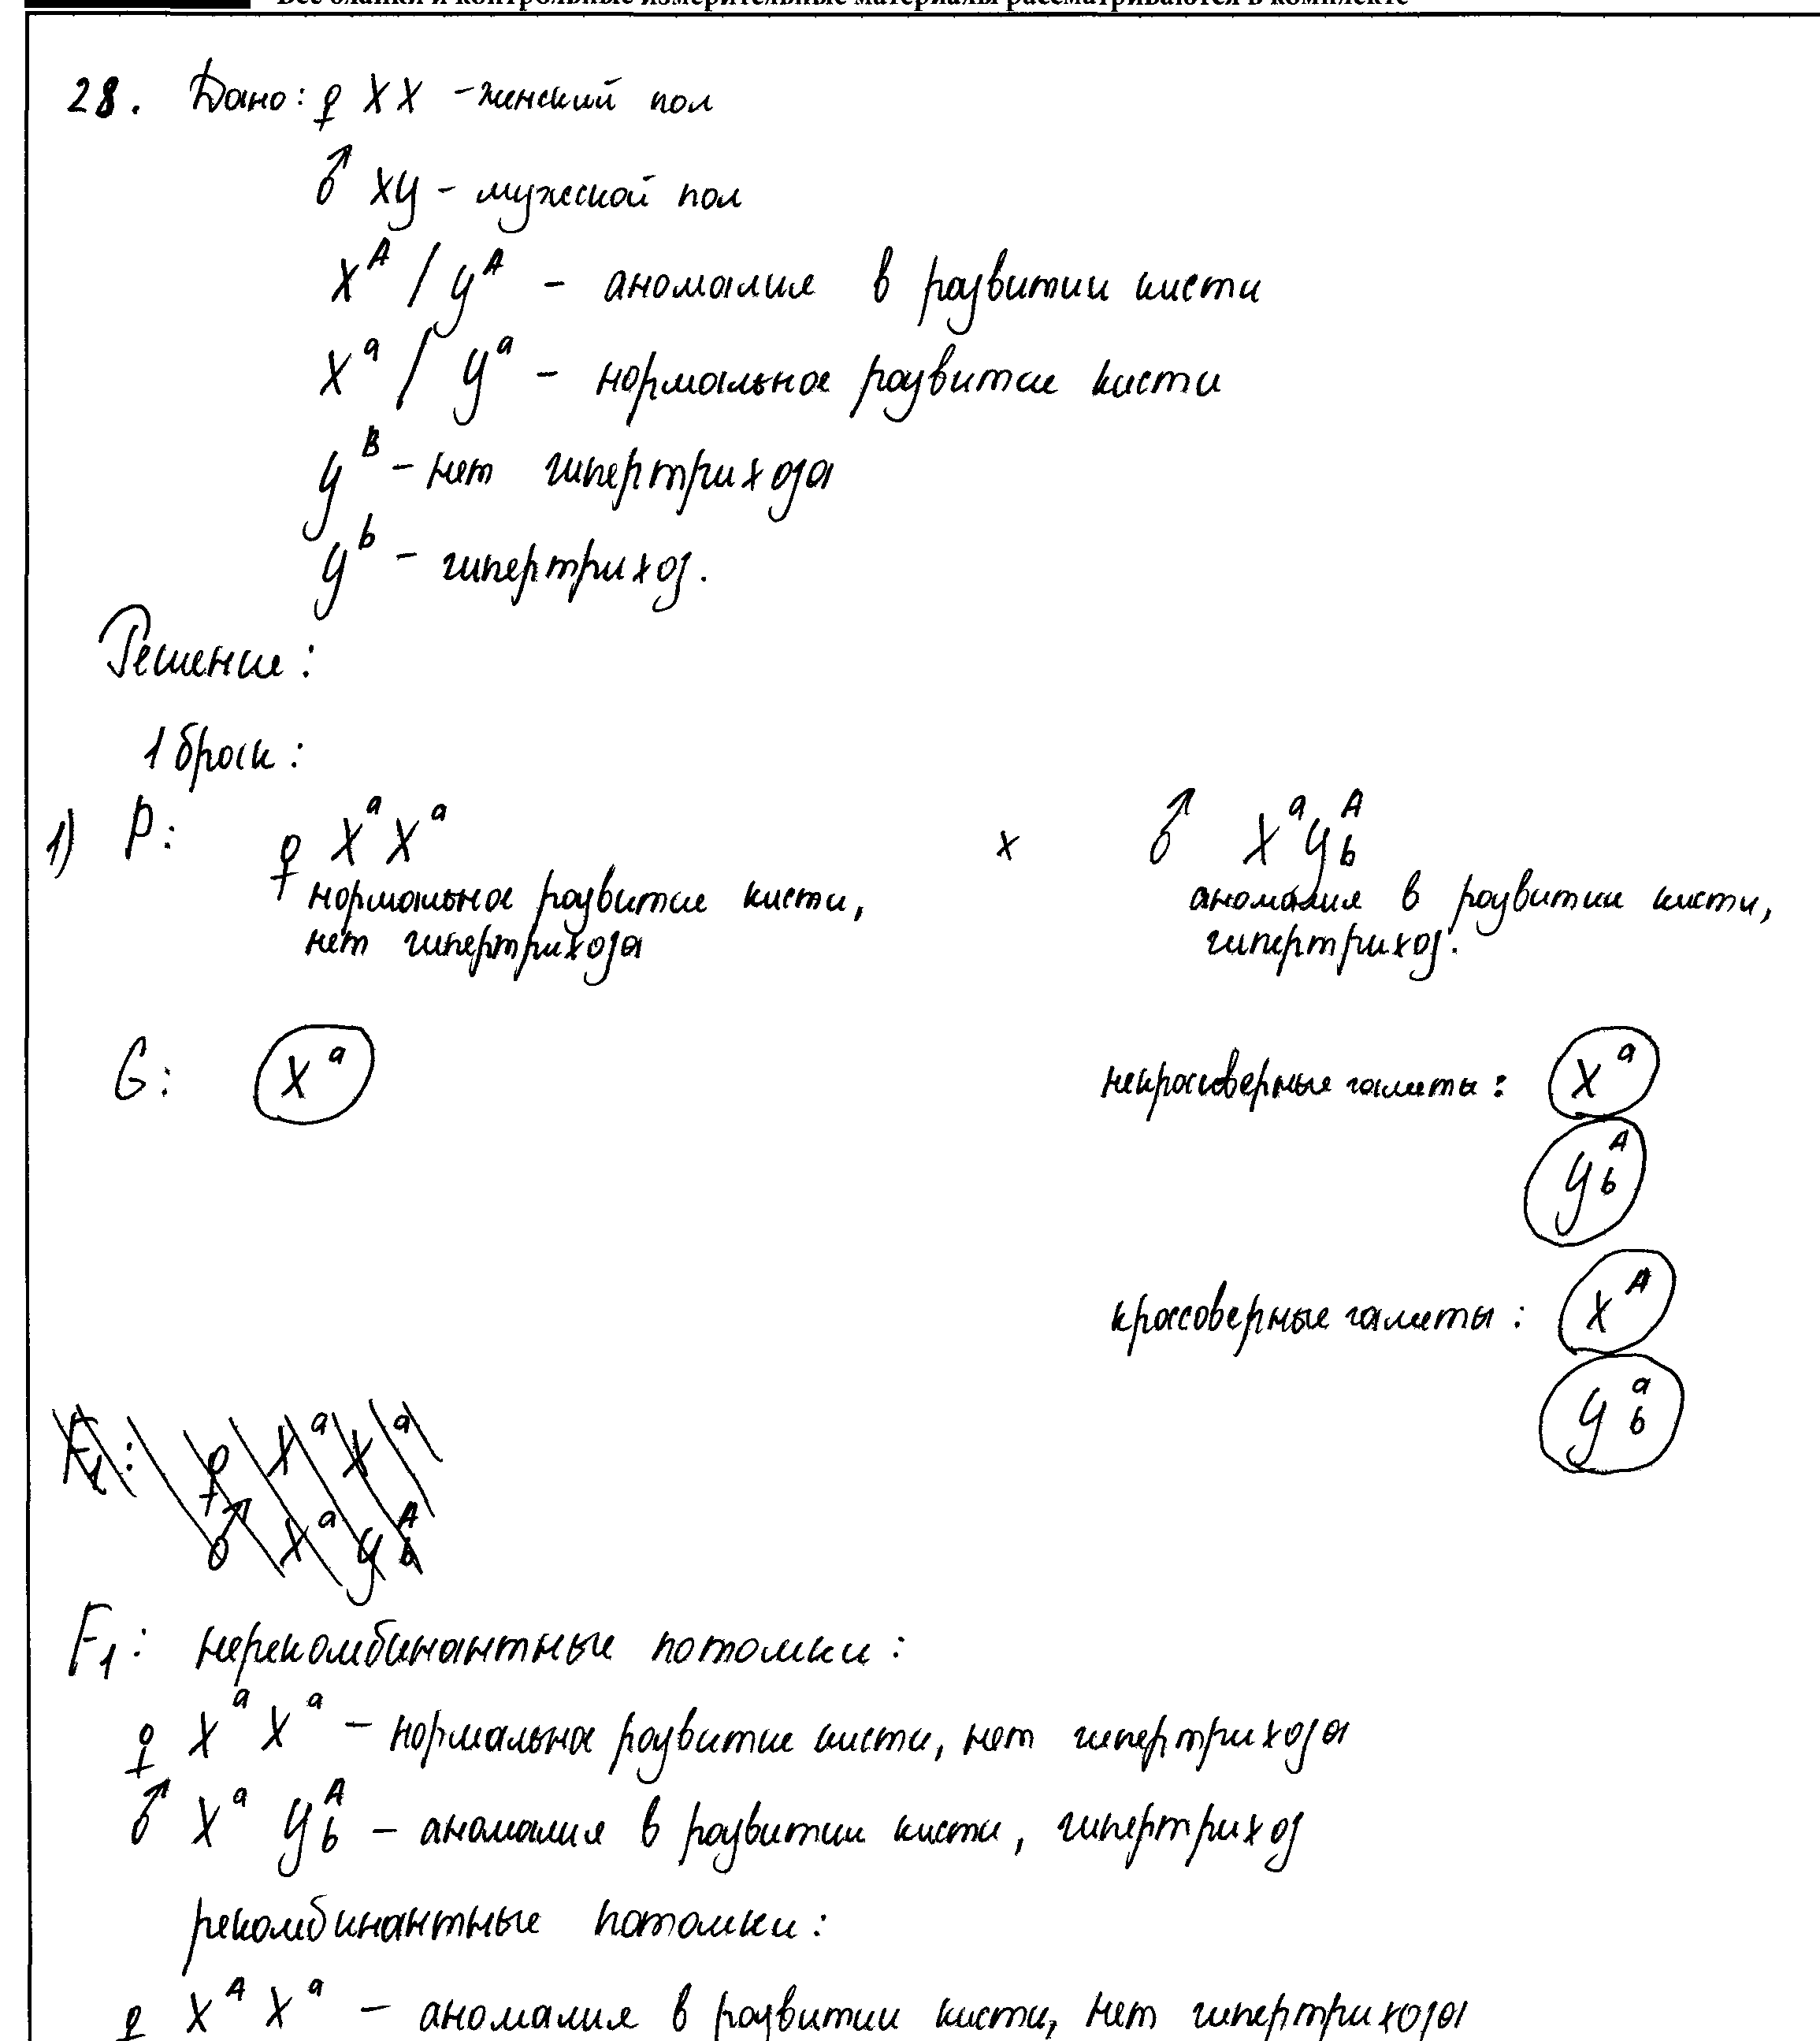 Все бланки и контрольные измерительные материалы рассматриваются в комплекте
28. Дано: ♀ XX - женский пол
♂ XY - мужской пол
X^A / Y^A - аномалия в развитии кисти
X^a / Y^a - нормальное развитие кисти
Y^B - нет гипертрихоза
Y^b - гипертрихоз.
Решение:
1 брак:
1) P: ♀ X^a X^a x ♂ X^a Y^A_b
нормальное развитие кисти, аномалия в развитии кисти,
нет гипертрихоза гипертрихоз.
G: X^a некроссоверные гаметы: X^a
Y^A_b
кроссоверные гаметы: X^A
Y^a_b
F1: ♀ X^a X^a
♂ X^a Y^A_b
F1: нерекомбинантные потомки:
♀ X^a X^a - нормальное развитие кисти, нет гипертрихоза
♂ X^a Y^A_b - аномалия в развитии кисти, гипертрихоз
рекомбинантные потомки:
♀ X^A X^a - аномалия в развитии кисти, нет гипертрихоза